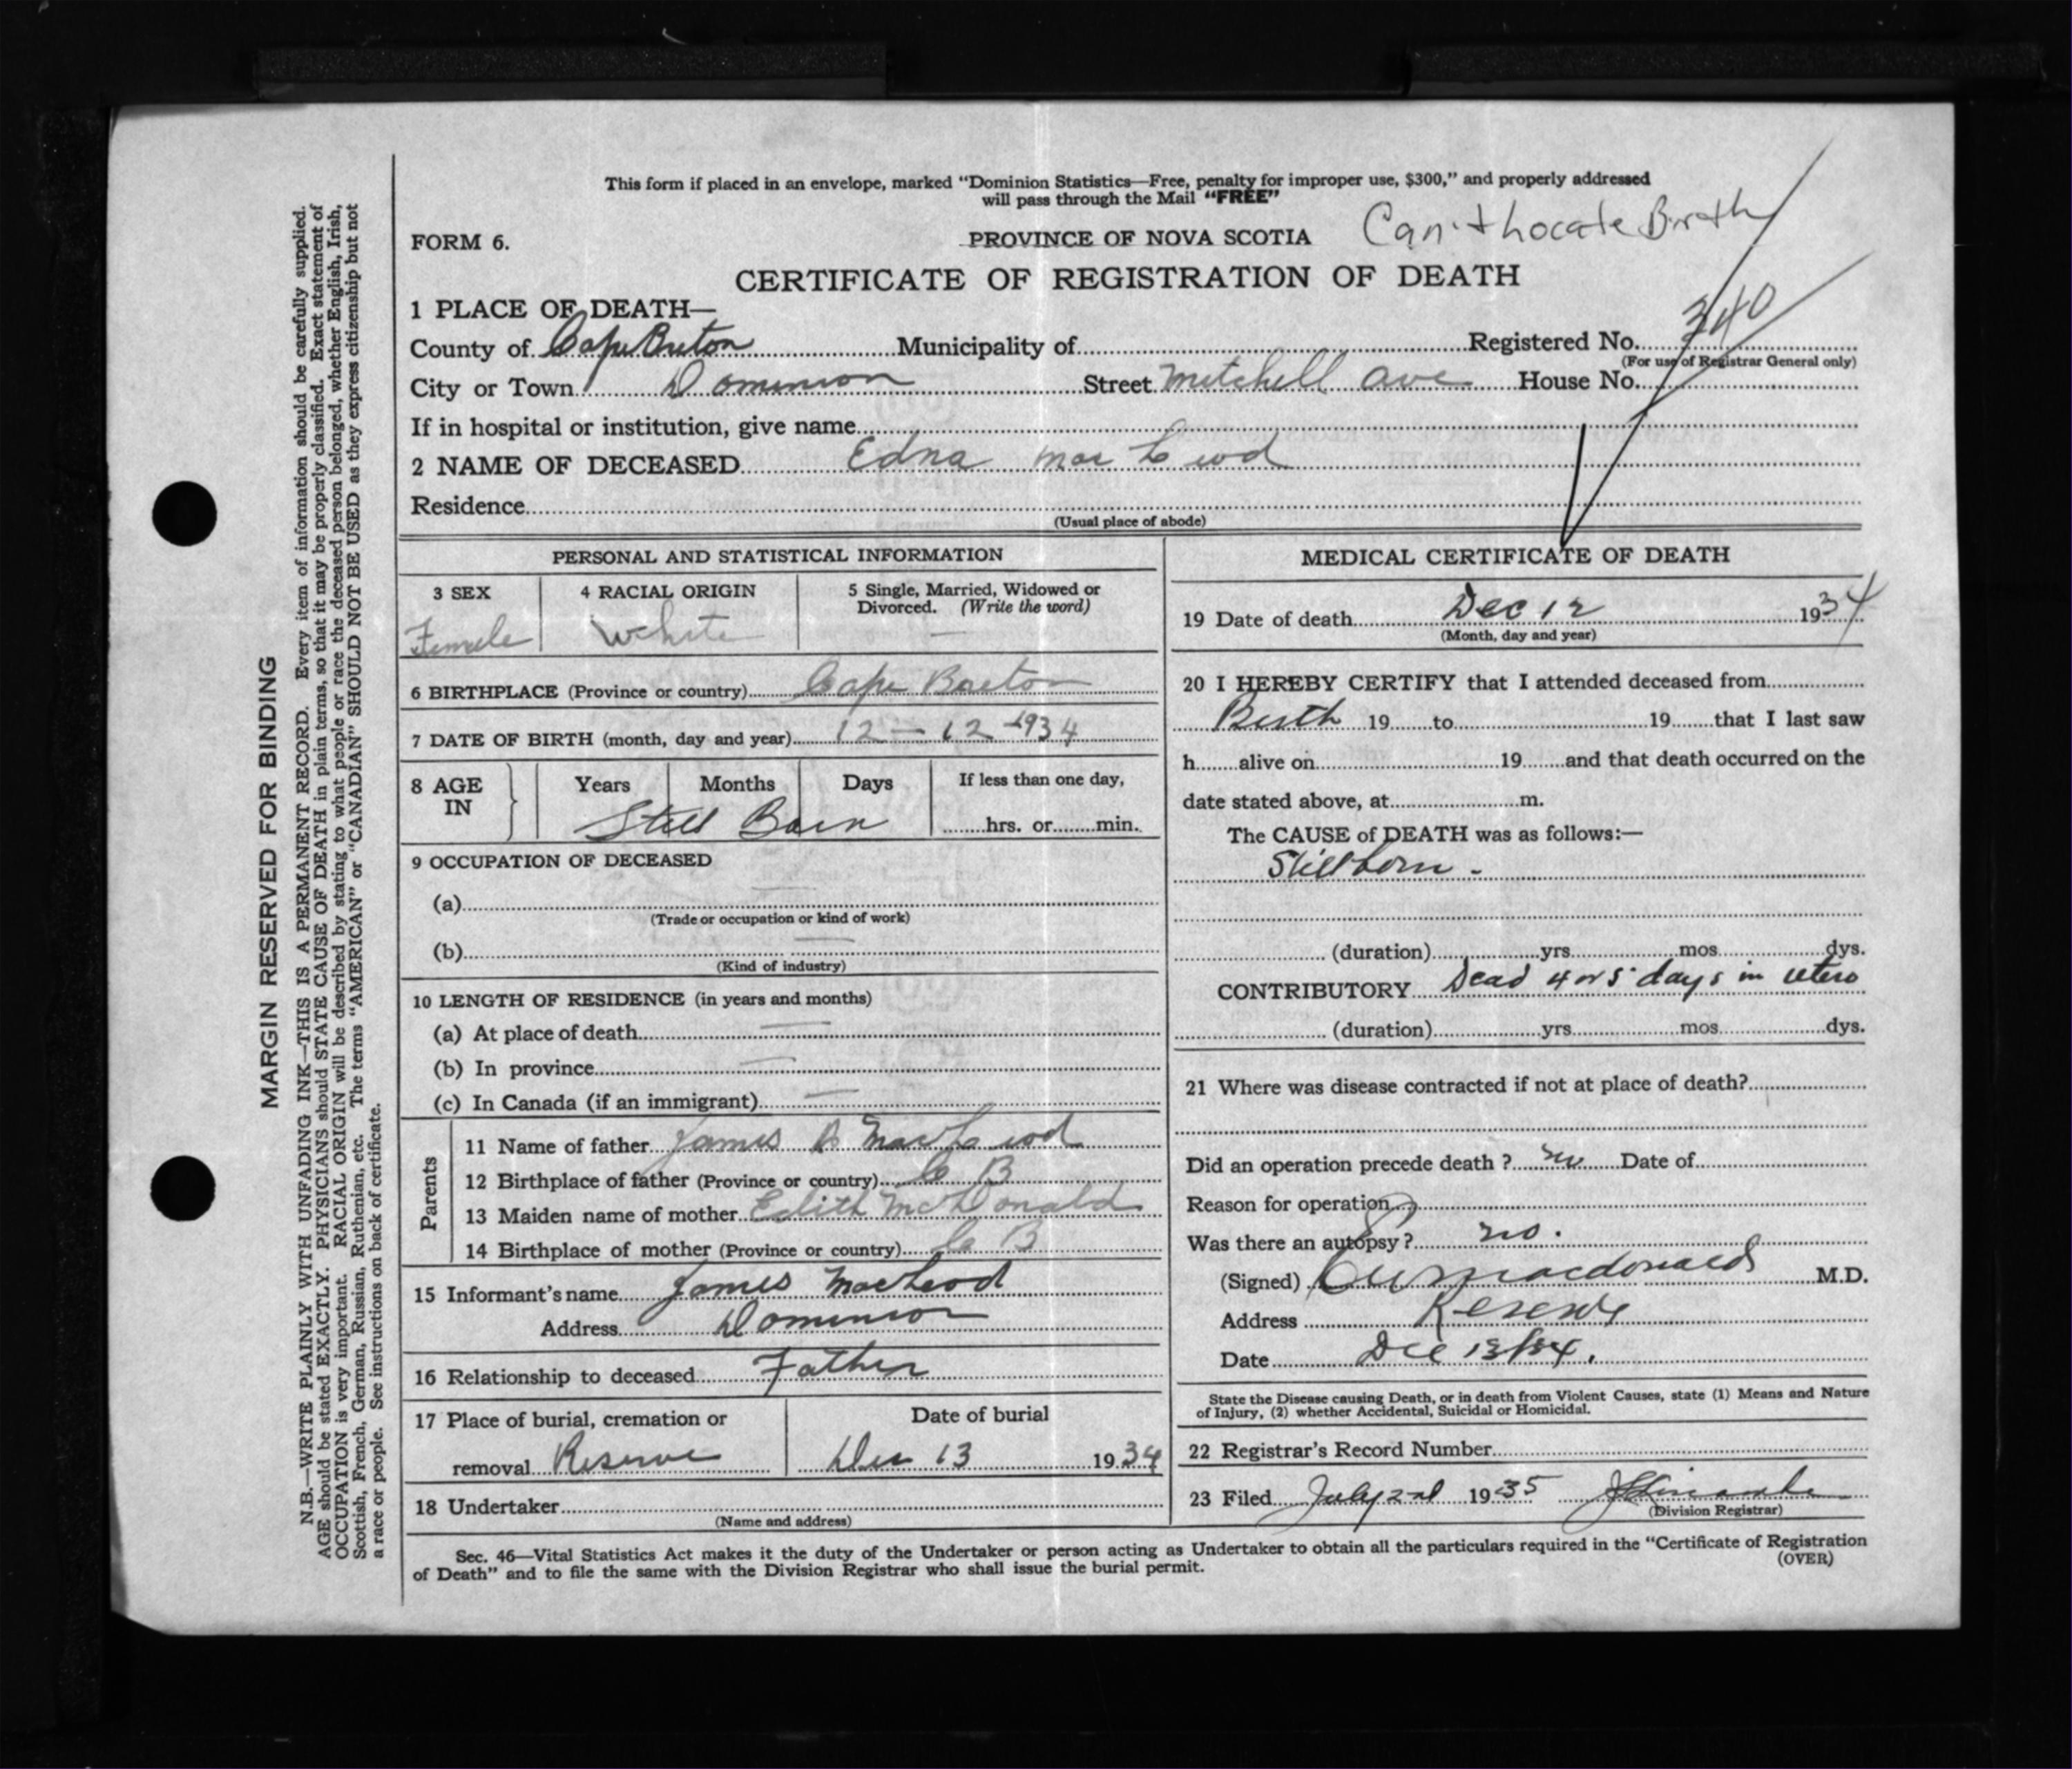 This form if placed in an envelope, marked "Dominion Statistics—Free, penalty for improper use, $300," and properly addressed
will pass through the Mail "FREE"
Can't Locate Birth
FORM 6.
PROVINCE OF NOVA SCOTIA
CERTIFICATE OF REGISTRATION OF DEATH
1 PLACE OF DEATH—
County of Cape Breton Municipality of Registered No. 340
(For use of Registrar General only)
City or Town Dominion Street Mitchell Ave House No.
If in hospital or institution, give name
2 NAME OF DECEASED Edna MacLeod
Residence
(Usual place of abode)
PERSONAL AND STATISTICAL INFORMATION
3 SEX
Female
4 RACIAL ORIGIN
White
5 Single, Married, Widowed or
Divorced. (Write the word)
—
6 BIRTHPLACE (Province or country) Cape Breton
7 DATE OF BIRTH (month, day and year) 12 — 12 - 1934
8 AGE
IN
Years Months Days If less than one day,
Still Born hrs. or min.
9 OCCUPATION OF DECEASED
(a) —
(Trade or occupation or kind of work)
(b) —
(Kind of industry)
10 LENGTH OF RESIDENCE (in years and months)
(a) At place of death —
(b) In province —
(c) In Canada (if an immigrant) —
Parents
11 Name of father James MacLeod
12 Birthplace of father (Province or country) C B
13 Maiden name of mother Edith McDonald
14 Birthplace of mother (Province or country) C B
15 Informant's name James MacLeod
Address Dominion
16 Relationship to deceased Father
17 Place of burial, cremation or
removal Reserve
Date of burial
Dec 13 1934
18 Undertaker
(Name and address)
MEDICAL CERTIFICATE OF DEATH
19 Date of death Dec 12 1934
(Month, day and year)
20 I HEREBY CERTIFY that I attended deceased from
Birth 19 to 19 that I last saw
h alive on 19 and that death occurred on the
date stated above, at m.
The CAUSE of DEATH was as follows:—
Stillborn -
(duration) yrs mos dys.
CONTRIBUTORY Dead 4 or 5 days in utero
(duration) yrs mos dys.
21 Where was disease contracted if not at place of death?
Did an operation precede death ? no Date of
Reason for operation
Was there an autopsy ? no .
(Signed) Macdonald M.D.
Address Reserve
Date Dec 13/34 .
State the Disease causing Death, or in death from Violent Causes, state (1) Means and Nature
of Injury, (2) whether Accidental, Suicidal or Homicidal.
22 Registrar's Record Number
23 Filed July 2nd 1935
(Division Registrar)
Sec. 46—Vital Statistics Act makes it the duty of the Undertaker or person acting as Undertaker to obtain all the particulars required in the "Certificate of Registration
of Death" and to file the same with the Division Registrar who shall issue the burial permit.
(OVER)
MARGIN RESERVED FOR BINDING
N.B.—WRITE PLAINLY WITH UNFADING INK—THIS IS A PERMANENT RECORD. Every item of information should be carefully supplied.
AGE should be stated EXACTLY. PHYSICIANS should STATE CAUSE OF DEATH in plain terms, so that it may be properly classified. Exact statement of
OCCUPATION is very important. RACIAL ORIGIN will be described by stating to what people or race the deceased person belonged, whether English, Irish,
Scottish, French, German, Russian, Ruthenian, etc. The terms "AMERICAN" or "CANADIAN" SHOULD NOT BE USED as they express citizenship but not
a race or people. See instructions on back of certificate.